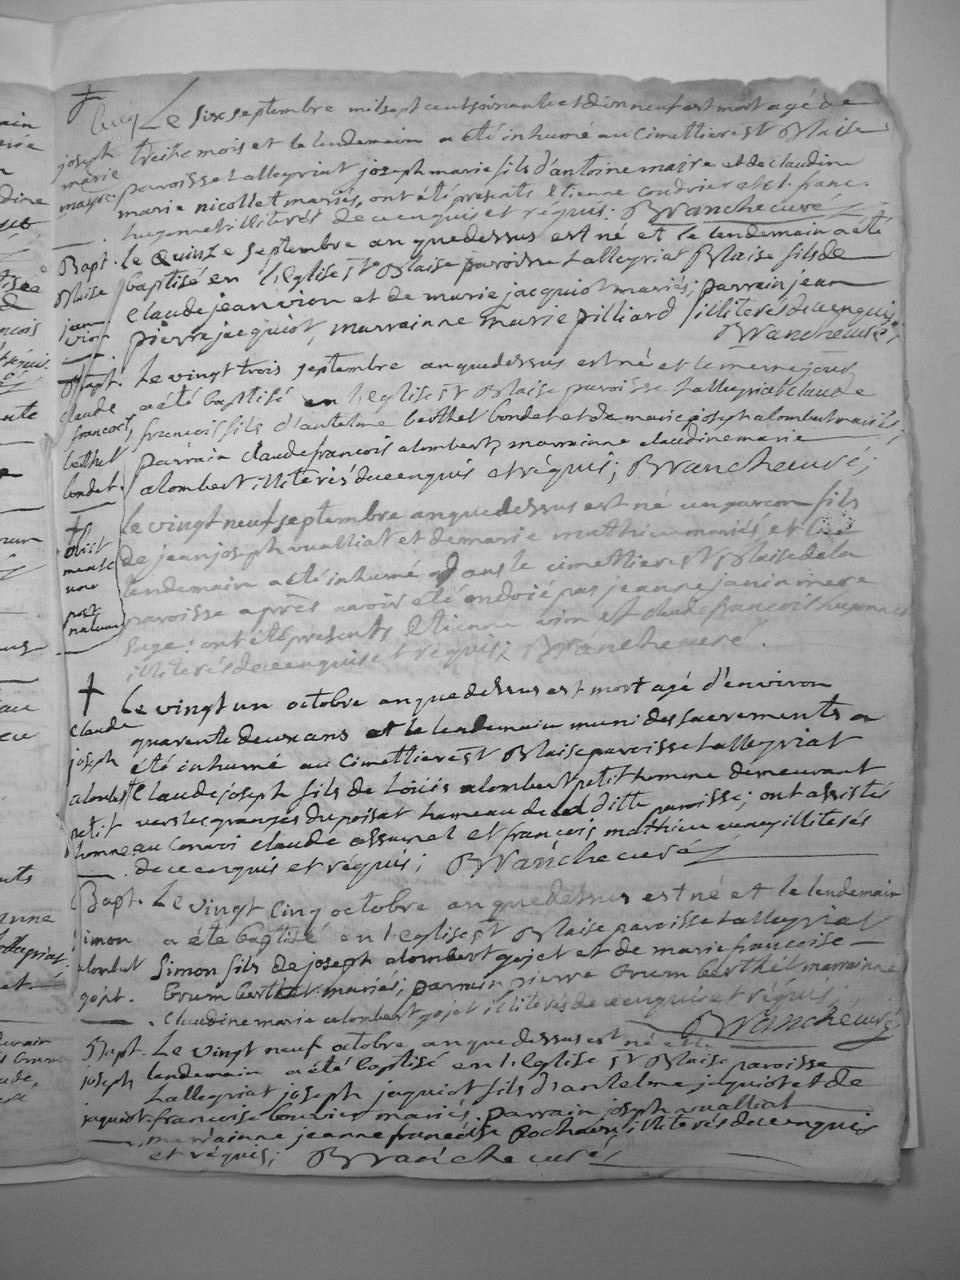 Le six septembre mil sept cent soixante et dix neuf est mort agé de
joseph treize mois et le lendemain a été inhumé au cimettiere st Blaise
marie paroisse Lalleyriat joseph marie fils d'antoine maire et de claudine
maire. marie nicollet mariés, ont été présents Etienne coudrier et cl. franc.
hugonnet illiterés de ce enquis et réquis; B Vranche curé
Bapt. le quinze septembre an que dessus est né et le lendemain a été
Blaise baptisé en l'Eglise st Blaise paroisse Lalleyriat Blaise fils de
jean claude jean vion et de marie jacquiot mariés; parrain jean
vion pierre jacquiot, marrainne marie pilliard illiterés de ce enquis
B Vranche curé
Bapt. Le vingt trois septembre an que dessus est né et le meme jour
claude a été baptisé en l'Eglise st Blaise paroisse Lalleyriat claude
francois francois fils d'antelme berthet bondet et de marie joseph alombert mariés;
berthet parrain claude francois alombert, marrainne claudine marie
bondet. alombert illiterés de ce enquis et réquis; B Vranche curé;
† le vingt neuf septembre an que dessus est né un garcon fils
obiit de jean joseph vualliat et de marie mathieu mariés, et le
lendemain a été inhumé dans le cimettiere st Blaise de la
paroisse après avoir été ondoié par jeanne janin mere
post
sage: ont été presents Etienne vion et claude francois hugonnet
illiterés de ce enquis et réquis; B Vranche curé.
† Le vingt un octobre an que dessus est mort agé d'environ
claude quarente deux ans et le lendemain muni des sacrements a
joseph été inhumé au cimettiere st Blaise paroisse Lalleyriat
alombert claude joseph fils de Loüis alombert petit homme demeurant
petit vers les granges du poisat hameau de la ditte paroisse; ont assistés
homme. au convoi claude assurel et francois mathieu illiterés
de ce enquis et réquis; B Vranche curé
Bapt. Le vingt cinq octobre an que dessus est né et le lendemain
simon a été baptisé en l'eglise st Blaise paroisse Lalleyriat
alombert Simon fils de joseph alombert gojet et de marie francoise
gojet. brum berthet mariés; parrain pierre brum berthet marrainne
claudine marie alombert gojet illiterés de ce enquis et réquis;
B Vranche curé
Bapt. Le vingt neuf octobre an que dessus est né et le
joseph lendemain a été baptisé en l'Eglise st Blaise paroisse
Lalleyriat joseph jaquiot fils d'antelme jaquiot et de
jaquiot. francoise bouvier mariés. parrain joseph vualliat
marrainne jeanne francoise illiterés de ce enquis
et réquis; B Vranche curé